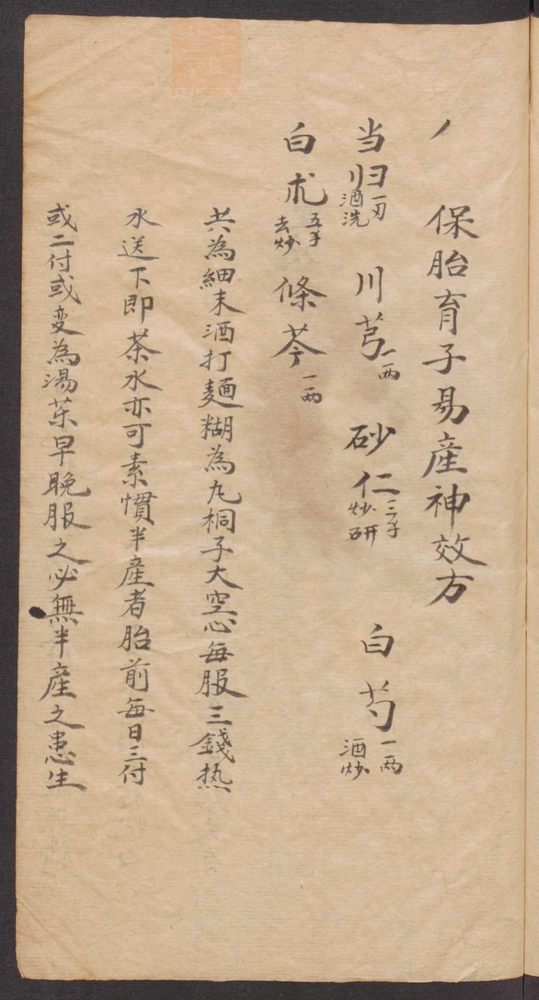 保胎育子易産神效方
当归一刄酒洗 川芎一两 砂仁三子炒研 白芍一两酒炒
白朮五子去炒 條芩一两
共為細末酒打麺糊為丸桐子大空心每服三錢热
水送下即茶水亦可素慣半産者胎前每日三付
或二付或变為湯茱早晚服之必無半産之患生